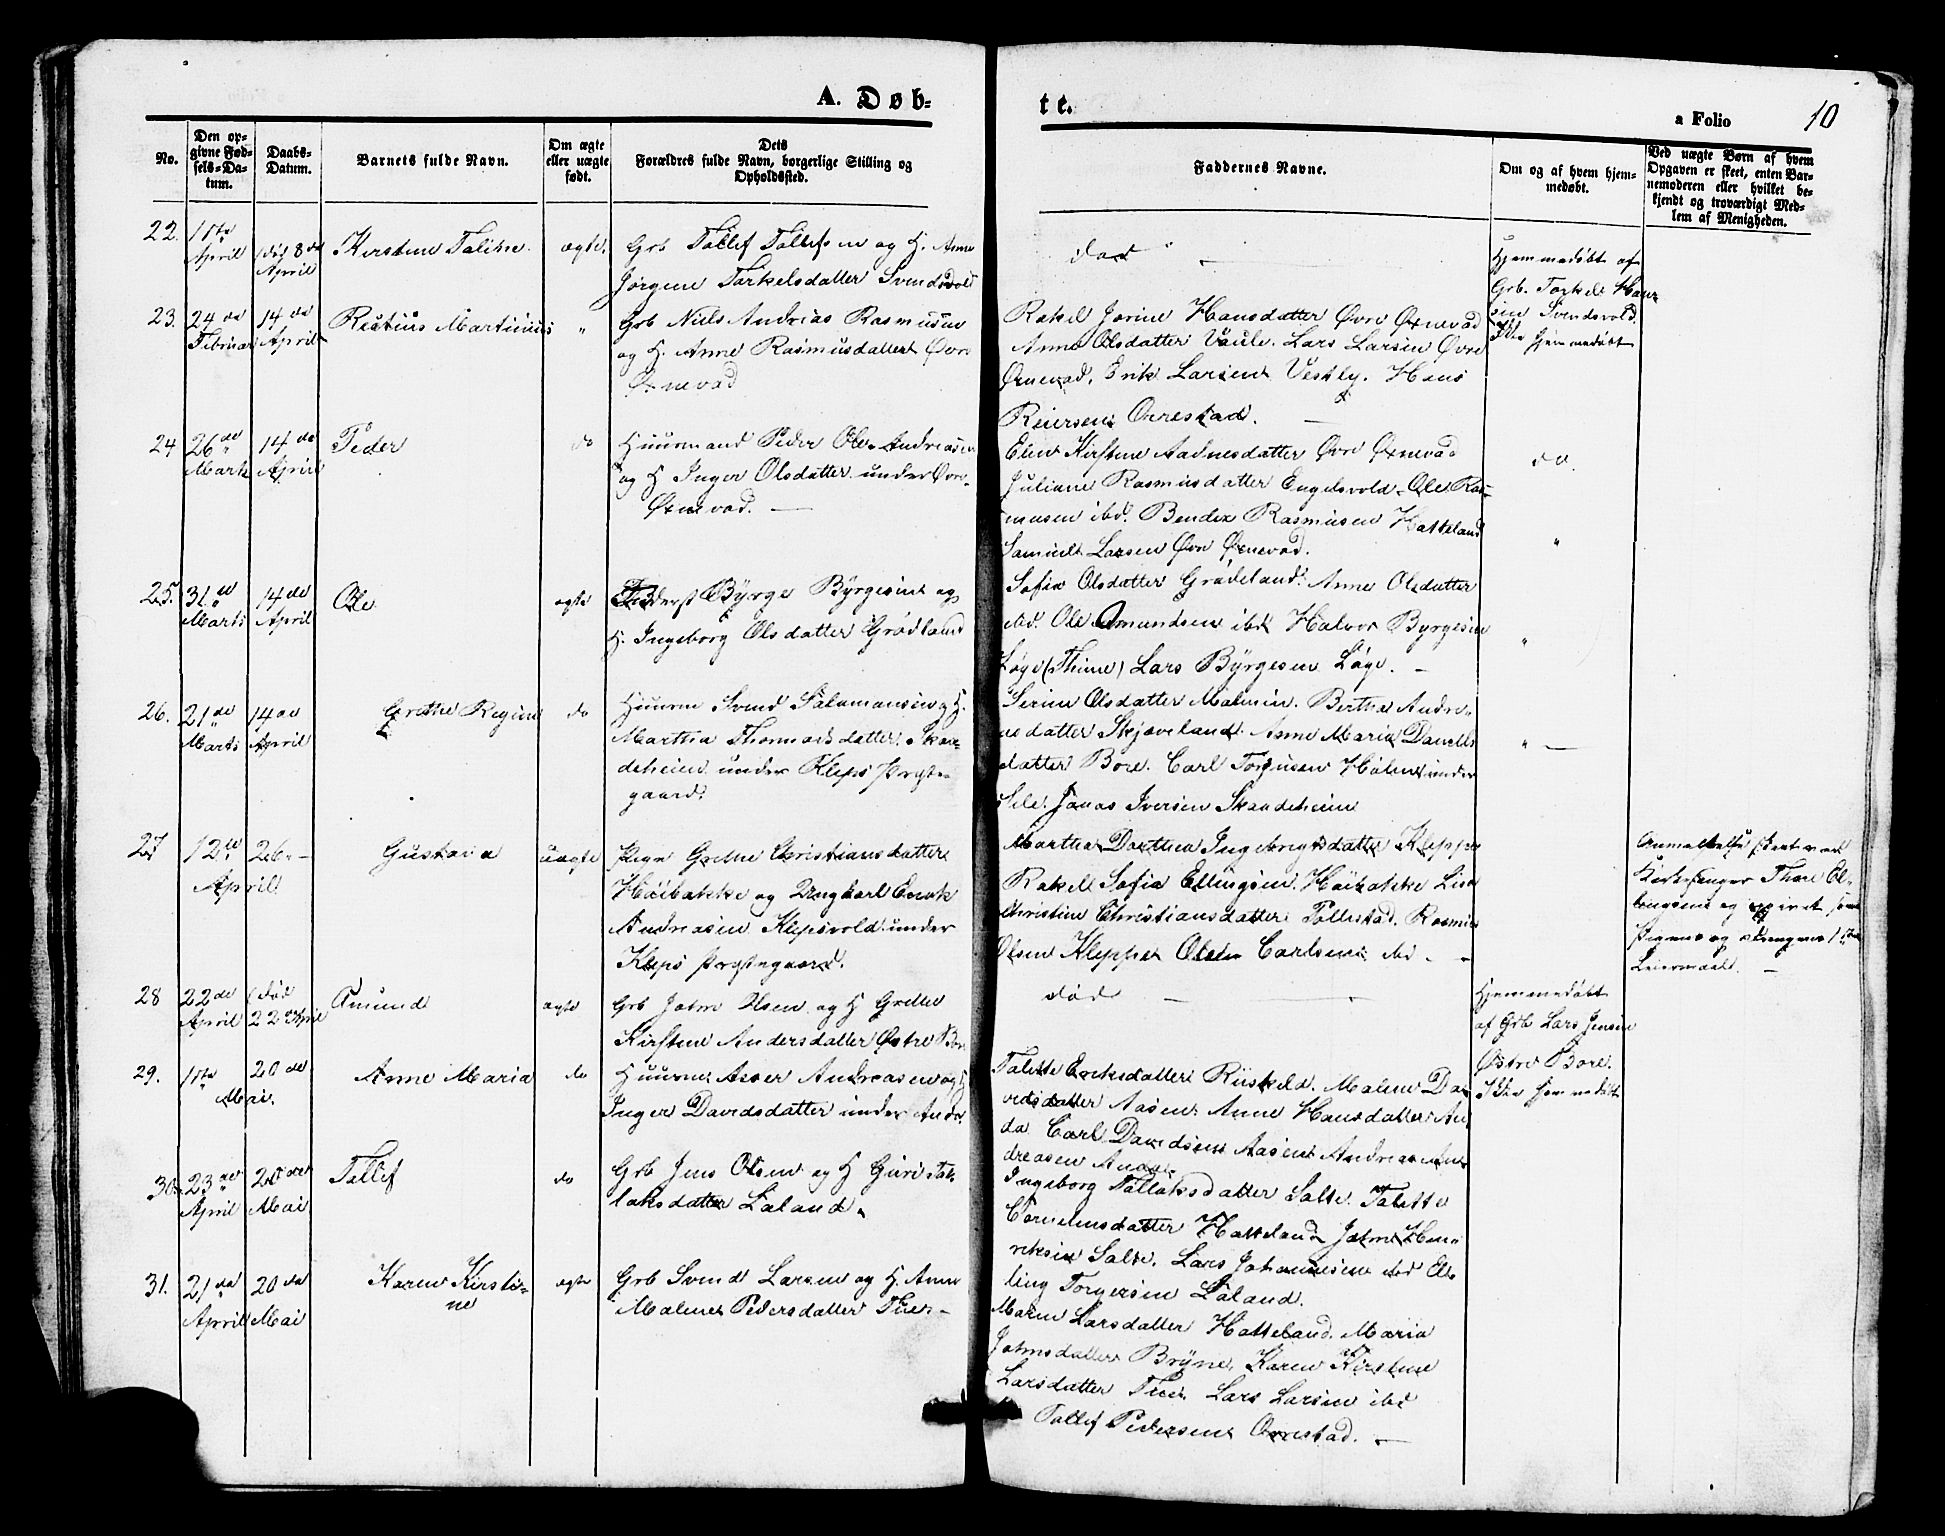 A. Døb-
te.
a Folio 10
No.
Den op-
givne Fød-
sels-Da-
tum.
Daabs-
Datum.
Barnets fulde Navn.
Om ægte
eller uægte
født.
Dets
Forældres fulde Navn, borgerlige Stilling og
Opholdssted.
Faddernes Navne.
Om og af hvem hjem-
medøbt.
Ved uægte Børn af hvem
Opgaven er skeet, enten Bar-
nemoderen eller hvilket be-
kjendt og troværdigt Med-
lem af Menigheden.
22.
1ste
April
død 8de
April
Kirstine Taline
ægte.
Grb Tollef Tollefsen og H. Anne
Jørgine Torkelsdatter Svendsvold
død
Hjemmedøbt af
Grb. Torkel Han-
sen Svendsvold.
23.
24de
Februar
14de
April
Martinius
"
Grb Niels Andrias Rasmusen
og H. Anne Rasmusdatter Øvre
Øxnevad
Rakel Jorine Hansdatter Øvre Øxnevad
Anne Olsdatter Vaule. Lars Larsen Øvre
Øxnevad. Erik Larsen Vestly. Hans
Reiersen Orrestad.
Ikke hjemmedøbt
24
26de
Marts
14de
April
Peder
do
Huusmand Peder Ole Andreasen
og H Inger Olsdatter under Øvre
Øxnevad. —
Elen Kirstine Aadnesdatter Øvre Øxnevad
Juliane Rasmusdatter Engelsvold. Ole Ras-
musen ibd. Bendix Rasmusen Hatteland
Samuel Larsen Øvre Øxnevad.
do.
"
25.
31te
Marts
14de
April
Ole
ægte
Byrge Byrgesen og
H. Ingeborg Olsdatter Grødland
Sofia Olsdatter Grødeland. Anne Olsdatter
ibd. Ole Omundsen ibd Halvor Byrgesen
Løge (Thime) Lars Byrgesen Løge. —
"
26.
21de
Marts
14de
April
Grethe Regine
do
Huusm Svend Salamonsen og H.
Marthia Thomasdatter. Skan-
deheien under Kleps Præste-
gaard.
Serine Olsdatter Malmin. Bertha Andre-
asdatter Skjæveland. Anne Maria Daniels
datter Bore. Carl Torgusen Holen under
Sele. Jonas Iversen Skandeheien
" —
27
12te
April
26. —
Gustava
uægte
Pige Grethe Christiansdatter
Høibakke og Ungkarl Enok
Andreasen Klepsvold under
Kleps Præstegaard.
Martha Dorthea Ingebrigtsdatter Kleppe
Rakel Sofia Ellingsen. Høibakke Lise
Christine Christiansdatter Tollestad. Rasmus
Olsen Kleppe Olen Carlsen ibd. —
Anmeldelse skeet ved
Kirkesanger Thore El-
lingsen og som
Pigens og Drengens 1ste
Leiermaal. —
28
22de
April
(død
22 April
Amund
ægte
Grb John Olsen og H Grethe
Kirstine Andersdatter Østre Bore
død —
Hjemmedøbt
af Grb Lars Jensen
Østre Bore.
29.
1ste
Mai.
20de
Anne Maria
do
Huusm. Asser Andreasen og H
Inger Davidsdatter under Anda.
Talette Eriksdatter Riiskeld. Malene Da-
vidsdatter Aasen. Anne Hansdatter An-
da Carl Davidsen Aasen Andreas An-
dreasen Anda.
Ikke hjemmedøbt
30.
23de
April
20de
Mai
Tollef
do
Grb Jens Olsen og H Guri Tol-
laksdatter Laland.
Ingeborg Tollaksdatter Salte. Talette
Corneliusdatter Hatteland John Hen-
riksen Salte. Lars Johannesen ibd El-
ling Torgersen Laland.
31.
21de
April
20de
Mai
Karen Kirsti-
ne
ægte
Grb Svend Larsen og H. Anne
Malene Pedersdatter Tuer —
Maren Larsdatter Hatteland. Maria
Johnsdatter Bryne. Karen Kirstine
Larsdatter Tuer. Lars Larsen ibd
Tollef Pedersen Orrestad. —